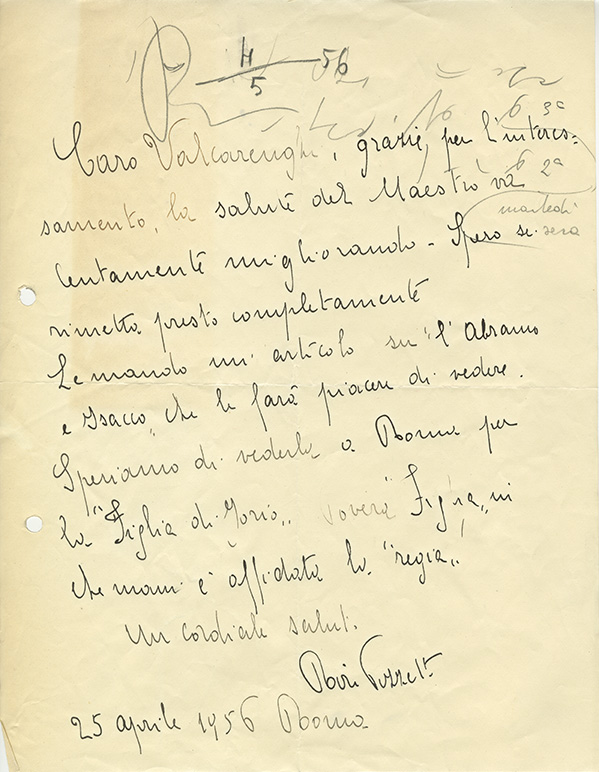 R 4/5 56
6 3a
Caro Valcarenghi, grazie, per l'interes-
6 2a
samento, la salute del Maestro va
martedì
sera
lentamente migliorando - Spero si
rimetta presto completamente
Le mando un'articolo su "l'Abramo
e Isacco" che le farà piacere di vedere.
Speriamo di vederla a Roma per
la "Figlia di Jorio" povera "Figlia" in
che mani è affidata la "regia".
Un cordiale saluti.
25 aprile 1956 Roma